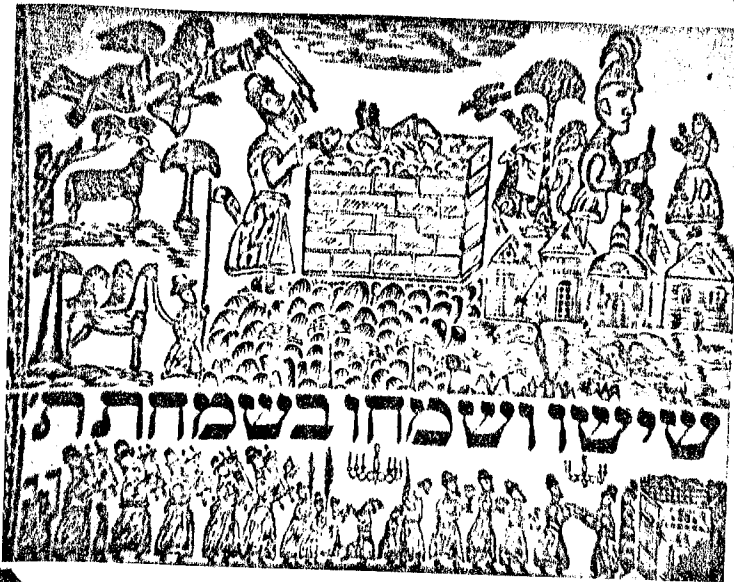 שישו ושמחו בשמחת ת'